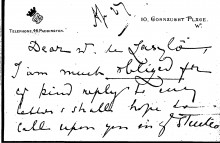 TELEPHONE, 46 PADDINGTON.
10, CONNAUGHT PLACE.
W.
Dear Mr. de Laszlo,
I am much obliged for
yr kind reply to my
letter & shall hope to
call upon you in yr Studio